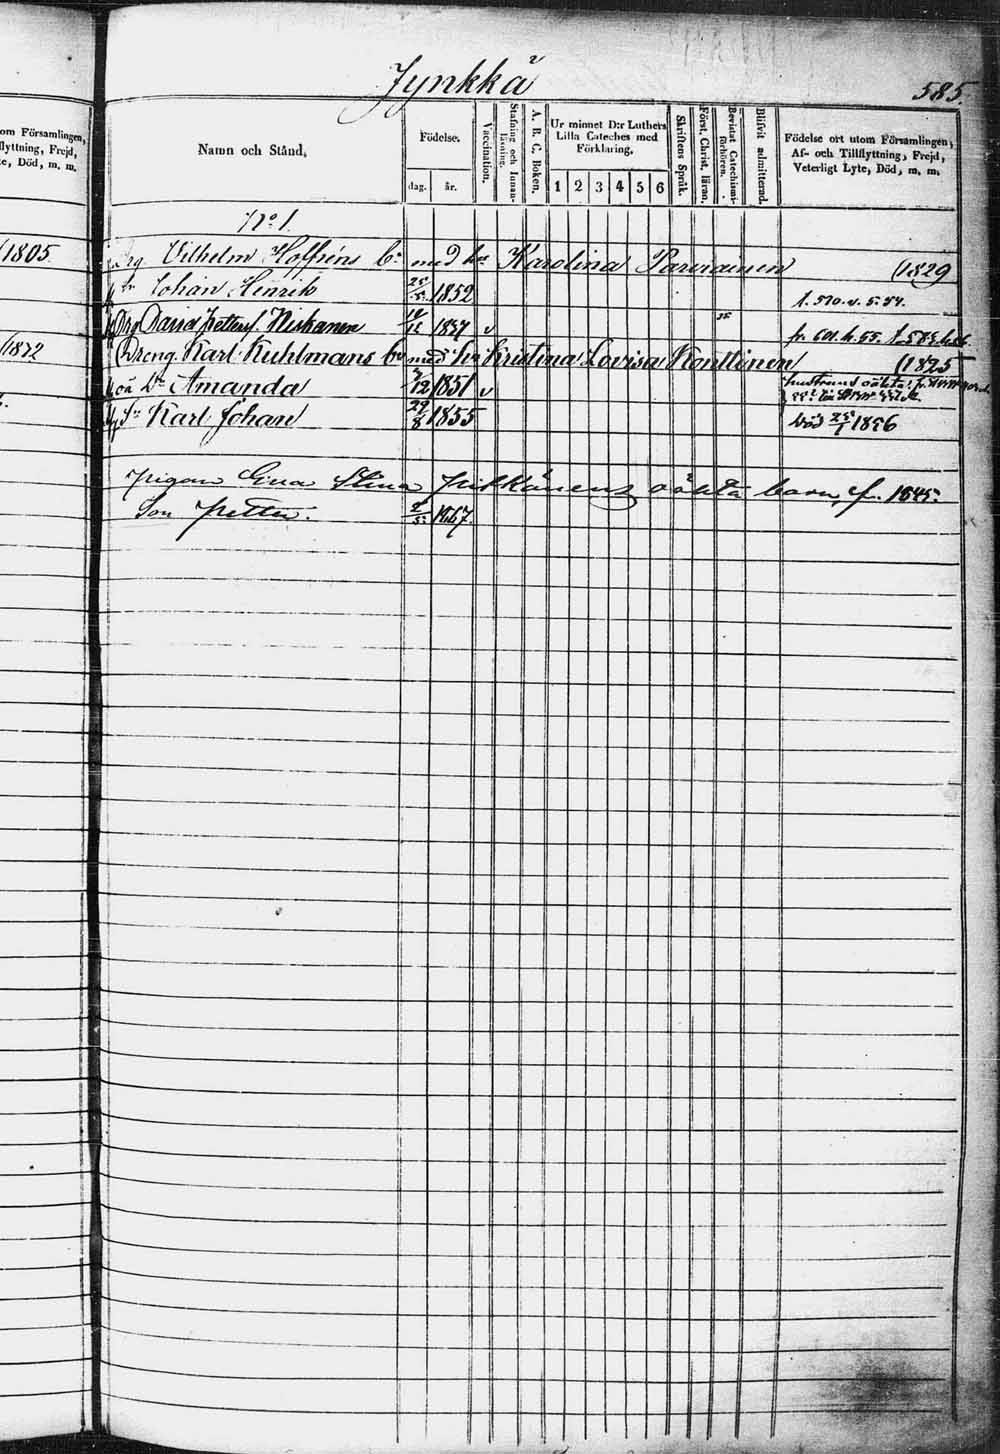 Jynkkä
585.
om Församlingen,
flyttning, Frejd,
te, Död, m. m.
Namn och Stånd,
Födelse.
dag. år.
Vaccination.
Stafning och Innan-
läsning.
A. B. C. Boken.
Ur minnet D:r Luthers
Lilla Cateches med
Förklaring.
1 2 3 4 5 6
Skriftens Språk.
Först. Christ. läran.
Bevistat Catechismi-
förhören.
Blifvit admitterad.
Födelse ort utom Församlingen,
Af- och Tillflyttning, Frejd,
Veterligt Lyte, Död, m. m.
No 1.
1805.
Vilhelm Hoffréns med Karolina Parviainen (1829
Johan Henrik 25/5 1852 f. 570. v. 5. 54.
David Petters. Niskanen 1837 v fr. 601. h. 55.
1872
Dreng. Karl Kuhlmans med Kristina Lovisa Konttinen (1825
oä Dr Amanda /12 1851 v
Sn Karl Johan 29/8 1855 Död 25/1 1856
Pigan Stina oäkta barn, f. 1845.
Son Petter. 2/5 1867.